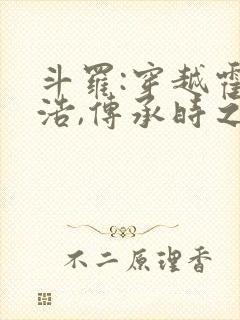 斗羅:穿越霍
浩,傳承時之
不二原理香